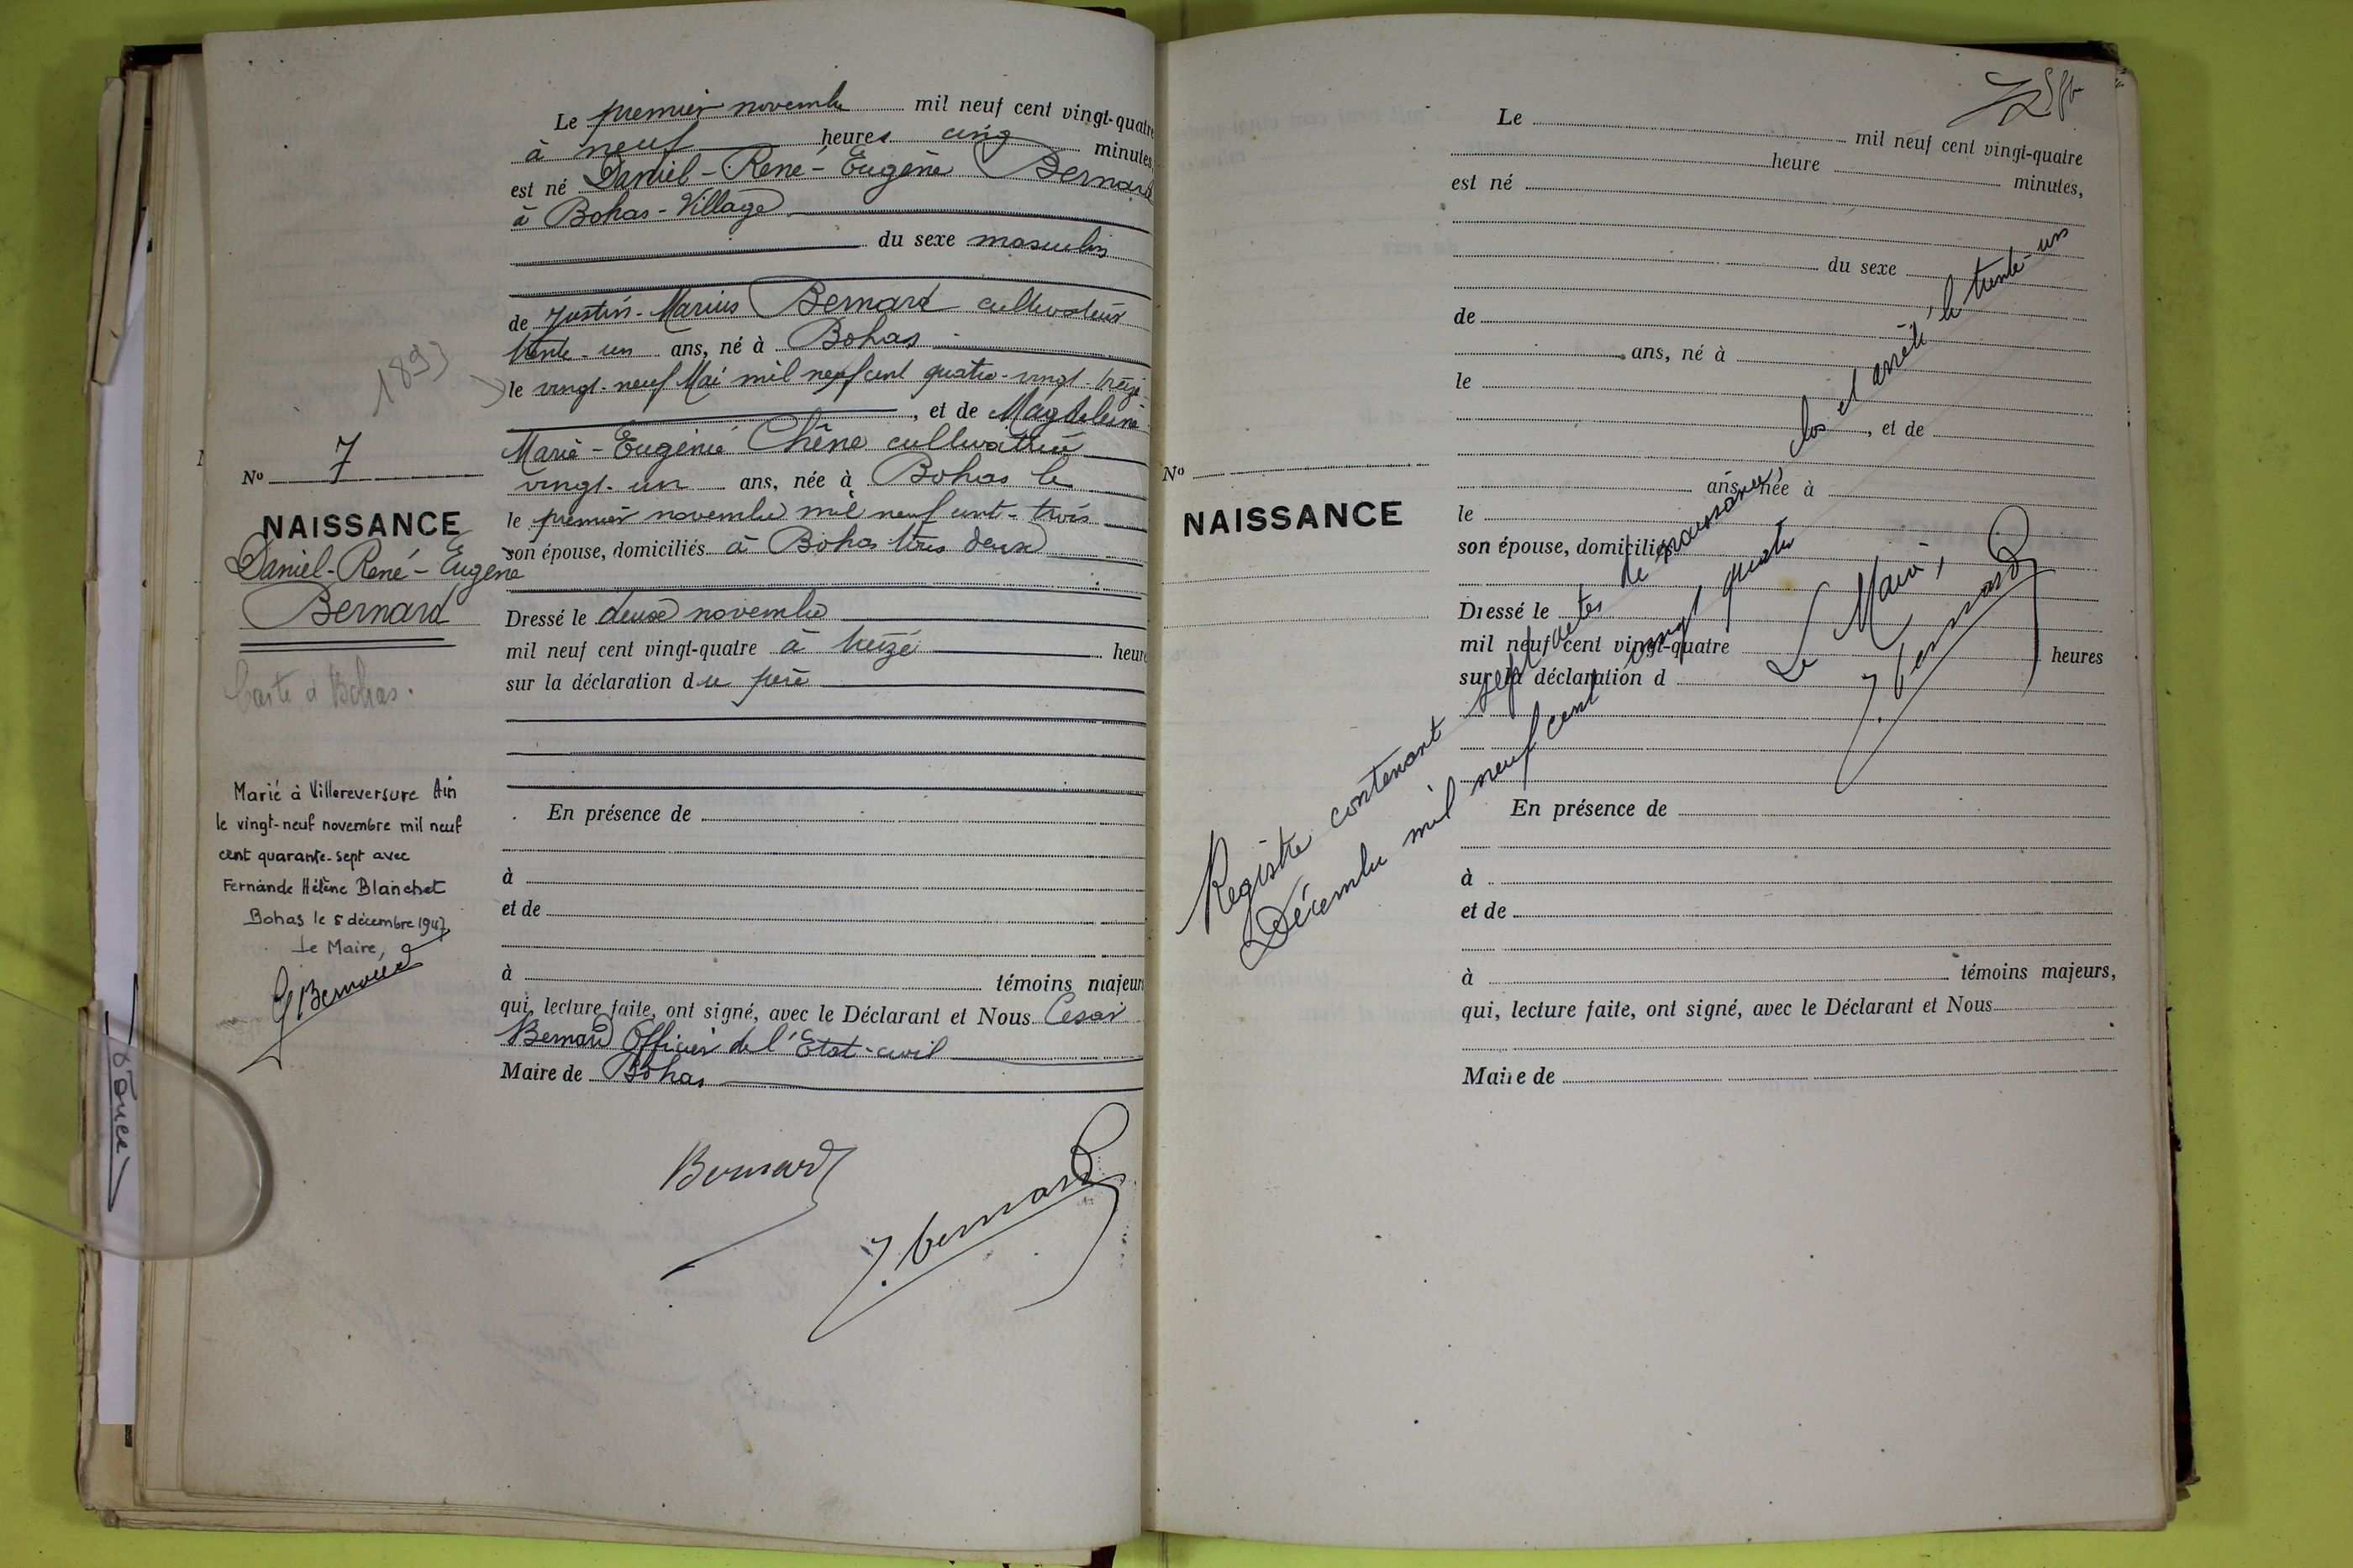 Le premier novembre mil neuf cent vingt-quatre
à neuf heures cinq minutes
est né Daniel-René-Eugène Bernard
à Bohas-Village
du sexe masculin
de Justin-Marius Bernard cultivateur
trente-un ans, né à Bohas
1893
le vingt-neuf Mai mil neuf cent quatre-vingt-treize
, et de Magdeleine
Marie-Eugénie Chêne cultivatrice
vingt-un ans, née à Bohas le
le premier novembre mil neuf cent-trois
son épouse, domiciliés à Bohas tous deux
Dressé le deux novembre
mil neuf cent vingt-quatre à treize heure
sur la déclaration du père
En présence de
à
et de
à témoins majeurs
qui, lecture faite, ont signé, avec le Déclarant et Nous César
Bernard Officier de l'Etat-civil
Maire de Bohas
Bernard
J. Bernard
No 7
NAISSANCE
Daniel-René-Eugène
Bernard
Carte à Bohas.
Marié à Villereversure Ain
le vingt-neuf novembre mil neuf
cent quarante-sept avec
Fernande Hélène Blanchet
Bohas le 5 décembre 1947
Le Maire,
Le mil neuf cent vingt-quatre
heure minutes,
est né
du sexe
de
ans, né à
le
, et de
No
NAISSANCE
ans, née à
le
son épouse, domiciliés
Dressé le
mil neuf cent vingt-quatre heures
sur la déclaration d
En présence de
à
et de
à témoins majeurs,
qui, lecture faite, ont signé, avec le Déclarant et Nous
Maire de
Registre contenant sept actes de naissances, clos et arrêté le trente-un
Décembre mil neuf cent vingt quatre
Le Maire,
J. Bernard